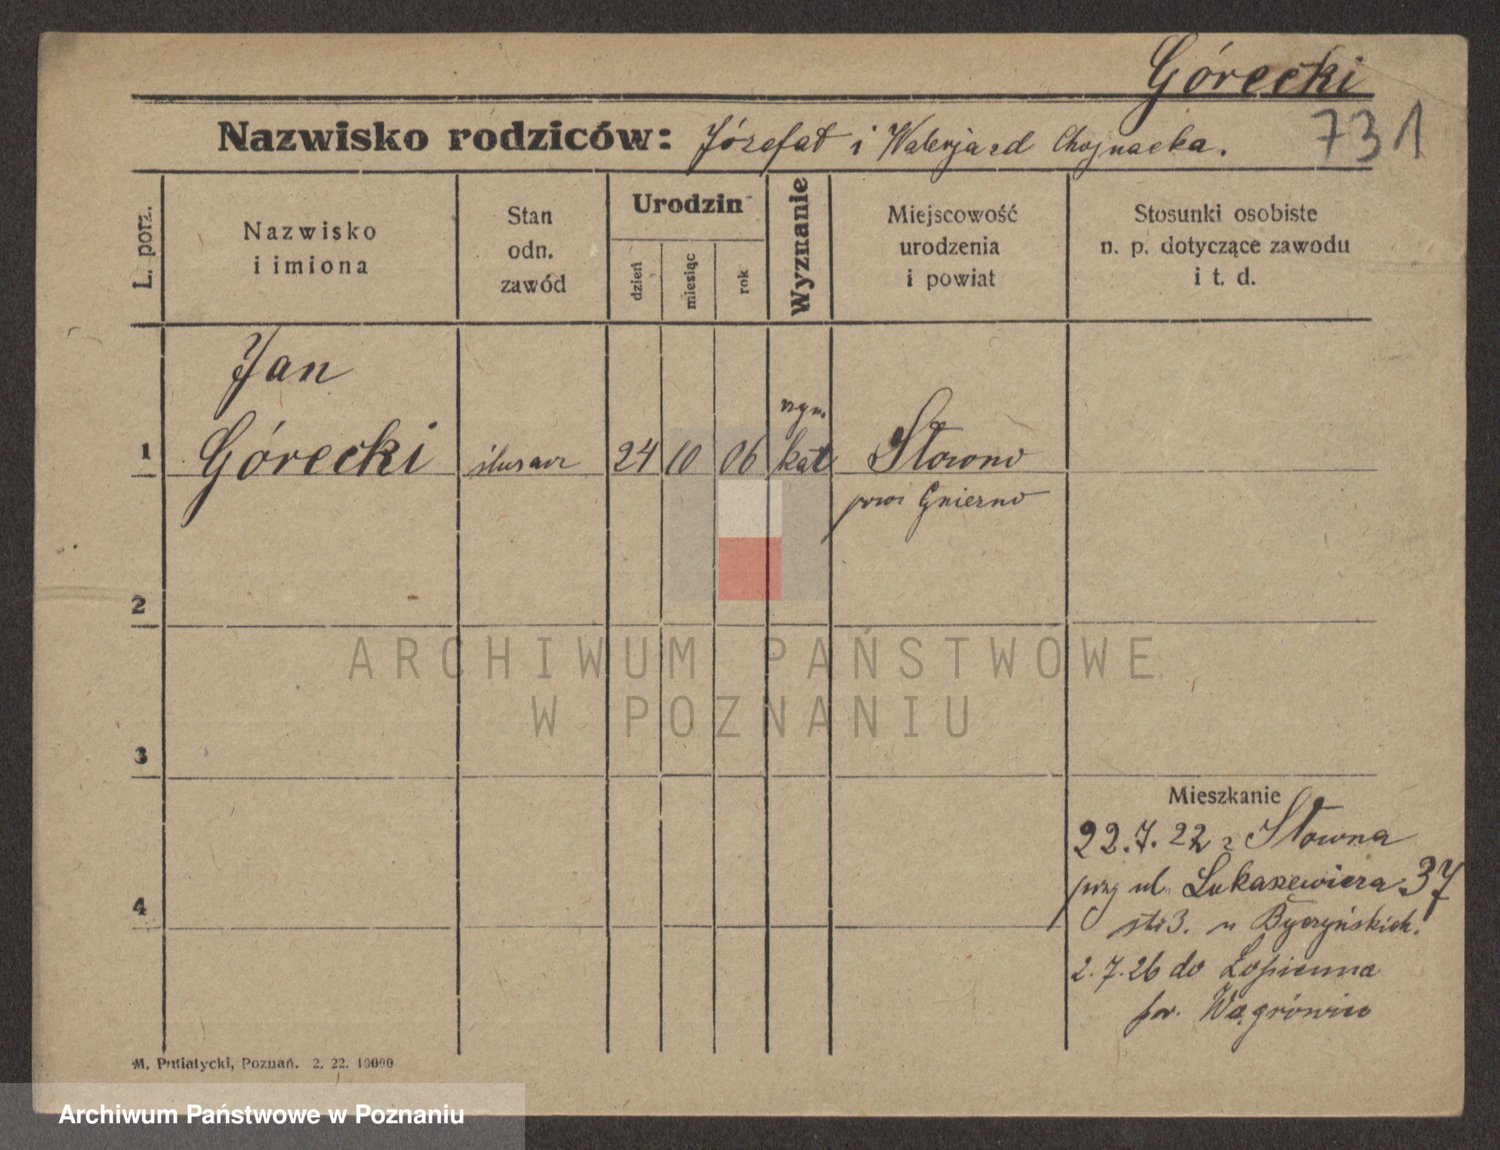 Górecki
731
Nazwisko rodziców: Józefat i Walerja zd Chojnacka.
L. porz.
Nazwisko
i imiona
Stan
odn.
zawód
Urodzin
dzień
miesiąc
rok
Wyznanie
Miejscowość
urodzenia
i powiat
Stosunki osobiste
n. p. dotyczące zawodu
i t. d.
Jan
rzym.
1 Górecki ślusarz 24 10 06 kat Słowno
pow Gniezno
2
ARCHIWUM PAŃSTWOWE
W POZNANIU
3
Mieszkanie
22.7.22 z Słowna
przy ul. Łukaszewicza 37
4
u Byczyńskich.
2.7.26 do Łopienna
pow. Wągrówiec
M. Putiatycki, Poznań. 2. 22. 10000
Archiwum Państwowe w Poznaniu